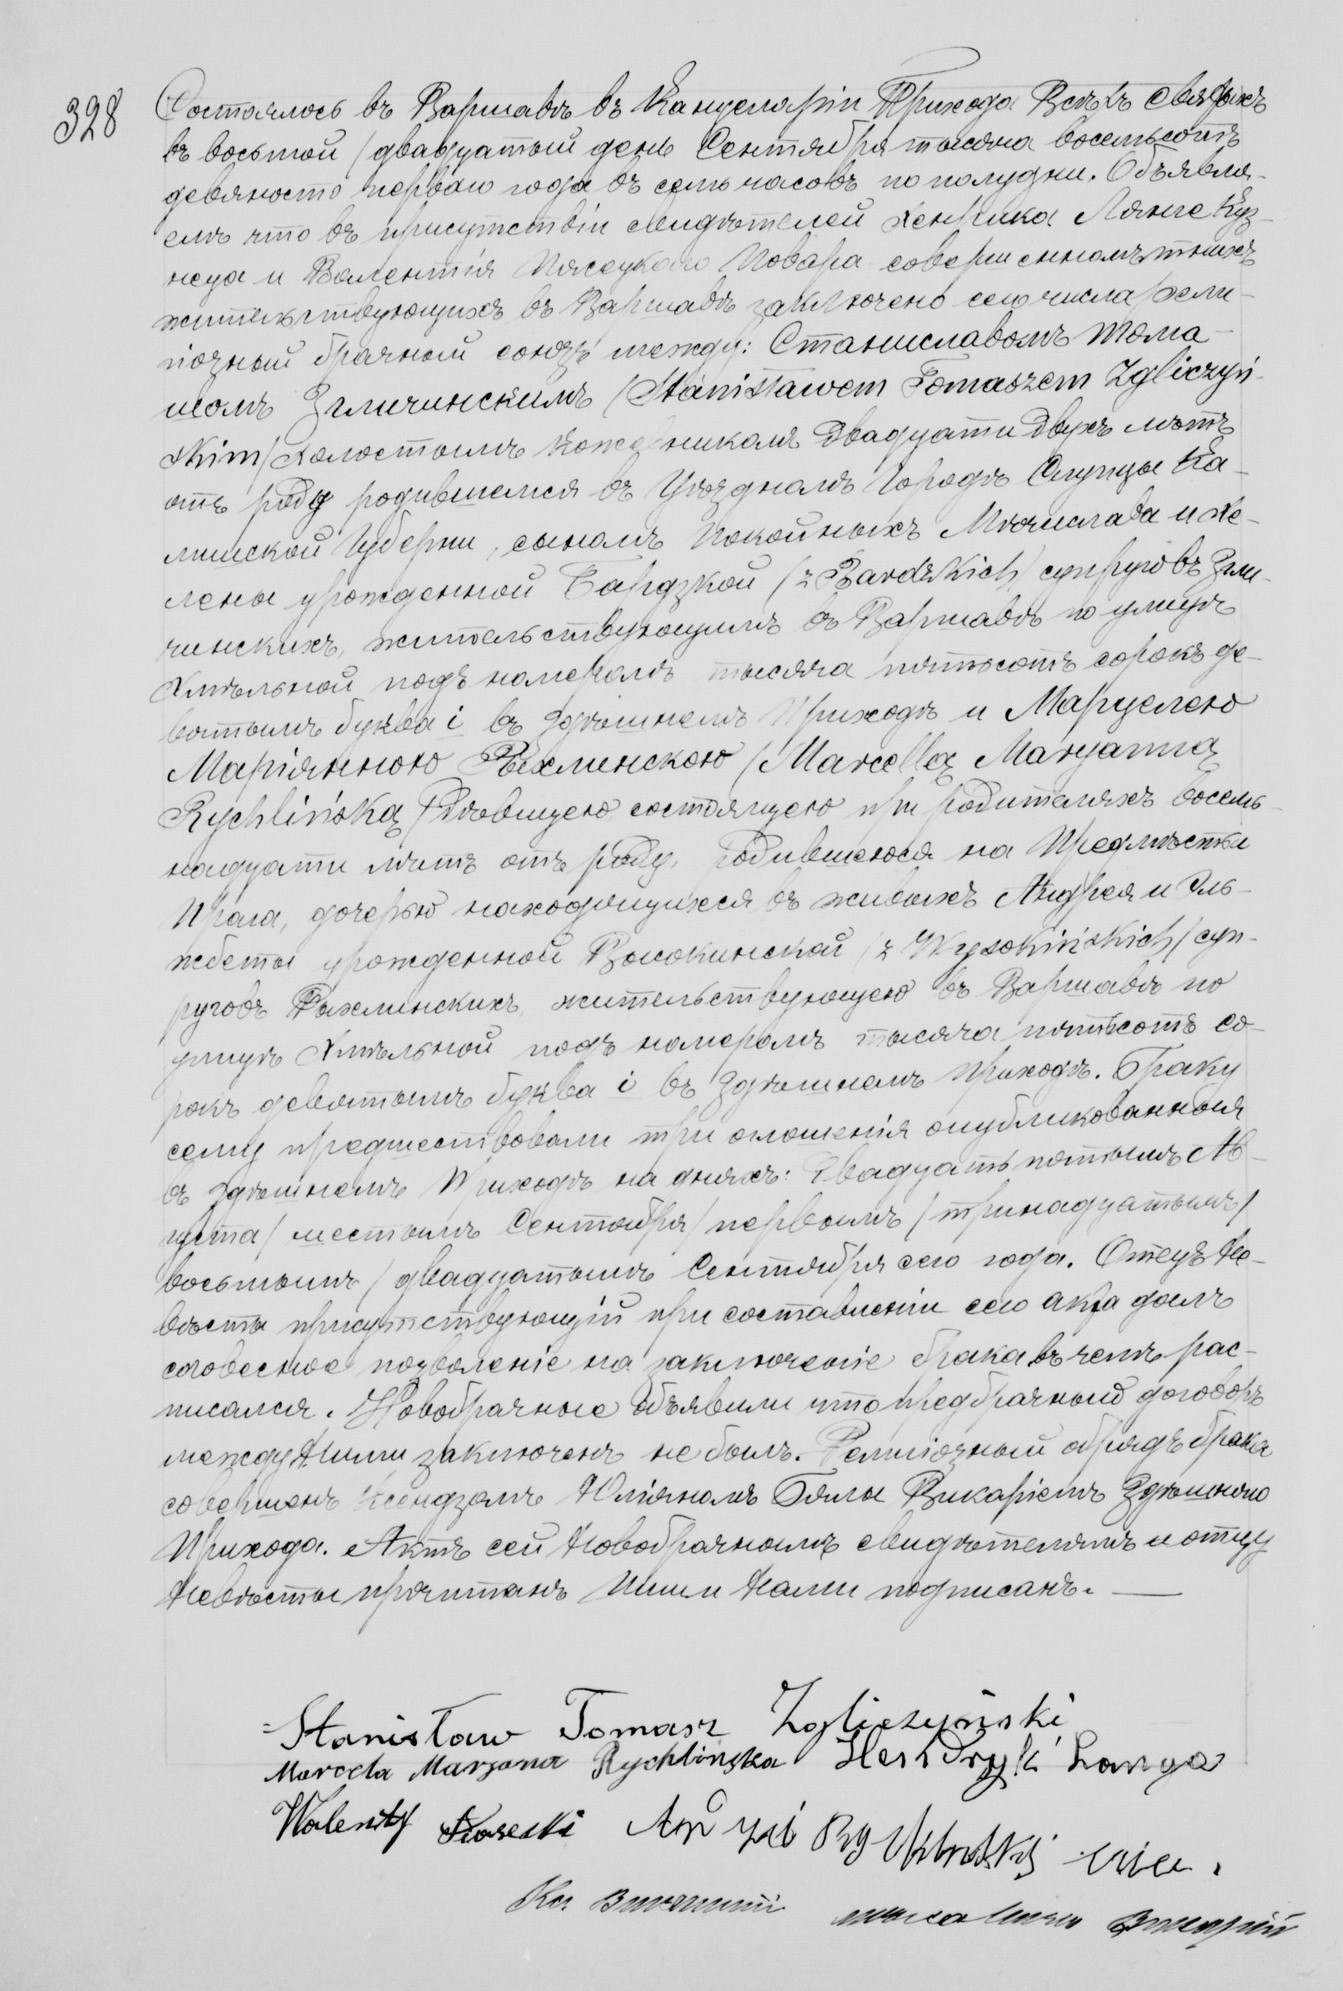 328
Состоялось въ Варшавѣ въ Канцеляріи Прихода Всѣхъ Святыхъ
въ восьмой /двадцатый день Сентября тысяча восемьсотъ
девяносто перваго года въ семь часовъ по полудни. Объявля-
емъ что въ присутствіи свидѣтелей Хенрика Лянге Куз-
неца и Валентія Пясецкаго Повара совершеннолѣтнихъ
жительствующихъ въ Варшавѣ заключено сего числа рели-
гіозный брачный союзъ между: Станиславомъ Тома-
шомъ Згличинскимъ /Stanisławem Tomaszem Zgliczyń-
skim/ холостымъ кожевникомъ двадцати двухъ лѣтъ
отъ роду родившемся въ Уѣздномъ Городѣ Слупцы Ка-
лишской Губерніи, сыномъ покойныхъ Мѣчислава и Хе-
лены урожденной Бардзкой /z Bardzkich/ супруговъ Згли-
чинскихъ, жительствующимъ въ Варшавѣ по улицѣ
Хмѣльной подъ номеромъ тысяча пятьсотъ сорокъ де-
вятымъ буква i въ здѣшнемъ Приходѣ и Марцелею
Маріянною Рыхлинскою /Marcellą Maryanną
Rychlińską/ Дѣвицею состоящею при родителяхъ восем-
надцати лѣтъ отъ роду, родившеюся на Предмѣстьи
Прага, дочерью находящихся въ живыхъ Андрея и Эль-
жбеты урожденной Высокинской /z Wysokińskich/ суп-
руговъ Рыхлинскихъ, жительствующею въ Варшавѣ по
улицѣ Хмѣльной подъ номеромъ тысяча пятьсотъ со-
рокъ девятымъ буква i въ здѣшнемъ Приходѣ. Браку
сему предшествовали три оглашенія опубликованныя
въ здѣшнемъ Приходѣ на дняхъ: Двадцать пятымъ Ав-
густа/ шестымъ Сентября/ первымъ /тринадцатымъ/
восьмымъ /двадцатымъ Сентября сего года. Отецъ Не-
вѣсты присутствующій при составленіи сего акта далъ
словесное позволеніе на заключеніе брака въ чемъ рас-
писался. Новобрачные объявили что предбрачный договоръ
между Ними заключенъ не былъ. Религіозный обрядъ брака
совершенъ Ксендзомъ Юліяномъ Бялы Викаріемъ Здѣшняго
Прихода. Актъ сей Новобрачнымъ свидѣтелямъ и отцу
Невѣсты прочитанъ Ими и Нами подписанъ.
Stanisław Tomasz Zgliczyński
Marcela Marjana Rychlinska Hendryk Langa
Walenty Piasecki Andrzei Rychlinski
Кс.